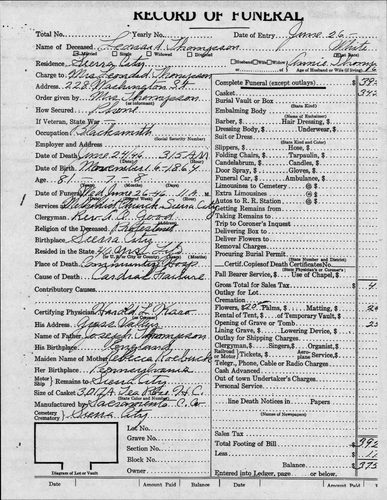 RECORD OF FUNERAL
Total No. Yearly No. Date of Entry June 26
Name of Deceased Leonard Thompson White
Married Single Widowed Divorced
Residence Sierra City Husband Wife Widow of
Charge to Mrs. Leonard Thompson Age of Husband or Wife (if living)
Address 228 Washington St.
Order given by Mrs. Thompson
(or informant)
How Secured Phone
If Veteran, State War
Occupation Blacksmith
(Social Security Number)
Employer and Address
Date of Death June 24/46 3:15 A.M.
Date of Birth November 4-1864
Age 81
Date of Funeral Wed June 26-46 11 A.M.
Services at Methodist Church Sierra City
Clergyman Rev. Good
Religion of the Deceased Protestant
Birthplace Sierra City
Resided in the State
Place of Death Community Hosp.
Cause of Death Cardiac Failure
Contributory Causes
Certifying Physician Harold
His Address Grass Valley
Name of Father Joseph Thompson
His Birthplace England
Maiden Name of Mother Rebecca
Her Birthplace Pennsylvania
Motor Ship Remains to Sierra City
Size
Manufactured by Sacramento C. Co.
Cemetery Crematory Sierra City
Lot No.
Grave No.
Section No.
Block No.
Owner
Diagram of Lot or Vault
Complete Funeral (except outlays) $
Casket 342
Burial Vault or Box
(State Kind)
Embalming Body
(Name of Embalmer)
Barber, $ Hair Dressing, $
Dressing Body, $ Underwear, $
Suit or Dress
(State Kind and Color)
Slippers, $ Hose, $
Folding Chairs, $ Tarpaulin, $
Candelabrum, $ Candles, $
Door Spray, $ Gloves, $
Funeral Car, $ Ambulance, $
Limousines to Cemetery @ $
Extra Limousines @ $
Autos to R. R. Station @ $
Getting Remains from
Taking Remains to
Trip to Coroner's Inquest
Delivering Box to
Deliver Flowers to
Removal Charges
Procuring Burial Permit
(State Number and District)
Certif. Copies of Death Certificates No.
(State Physician's or Coroner's)
Pall Bearer Service, $ Use of Chapel, $
Gross Total for Sales Tax $
Outlay for Lot
Cremation
Flowers, $20 Palms, $ Matting, $ 20
Rental of Tent, $ of Temporary Vault, $
Opening of Grave or Tomb
Lining Grave, $ Lowering Device, $
Outlay for Shipping Charges
Clergyman, $ Singers, $ Organist, $
Railroad or Motor Tickets, $ Aeroplane Service, $
Telegr., Phone, Cable or Radio Charges
Cash Advanced
Out of town Undertaker's Charges
Personal Service
line Death Notices in Papers
(Names of Newspapers)
Sales Tax
Total Footing of Bill $
Less
Balance $ 375
Entered into Ledger, page or below.
Date Amount Paid Balance Date Amount Paid Balance